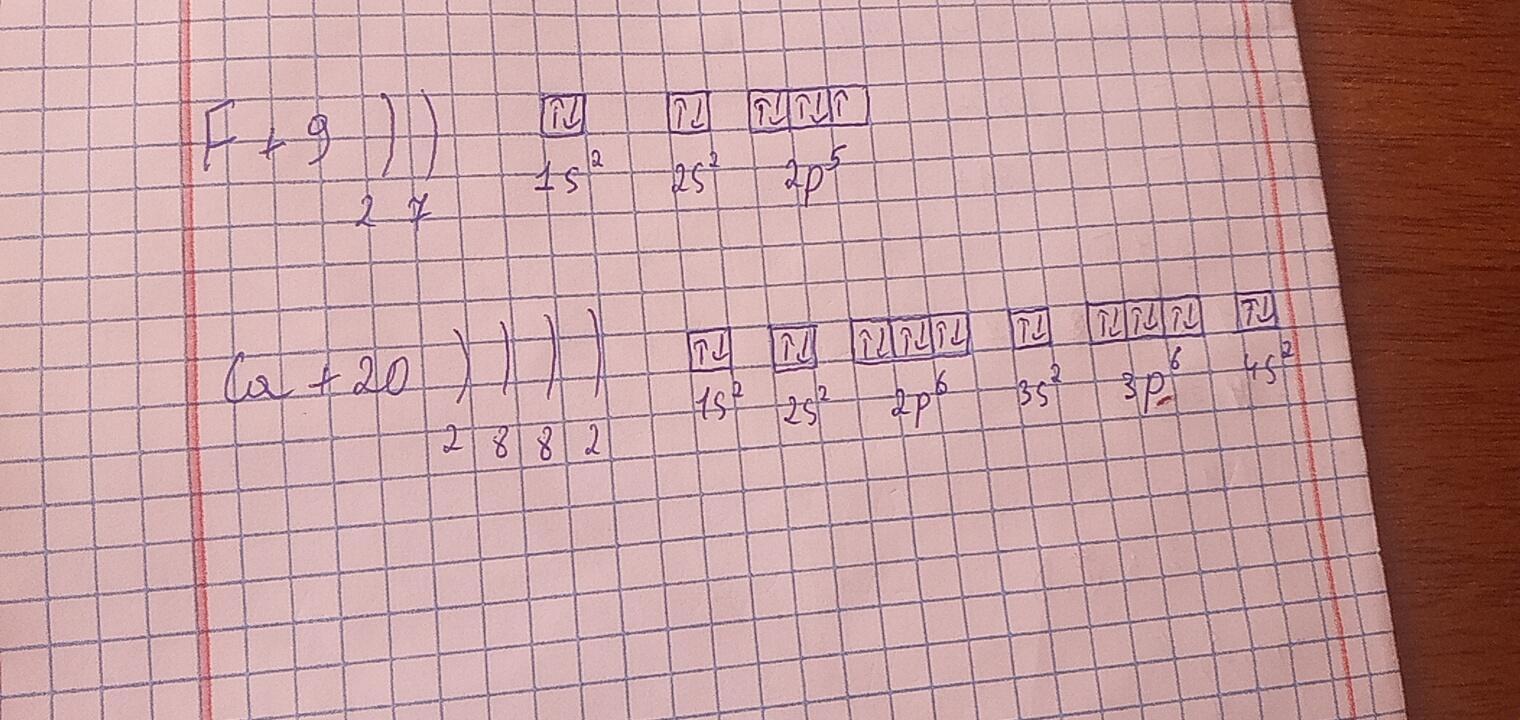 F +9 ) ) ↑↓ ↑↓ ↑↓ ↑↓ ↑
2 7 1s² 2s² 2p⁵
Ca +20 ) ) ) ) ↑↓ ↑↓ ↑↓ ↑↓ ↑↓ ↑↓ ↑↓ ↑↓ ↑↓ ↑↓
2 8 8 2 1s² 2s² 2p⁶ 3s² 3p⁶ 4s²